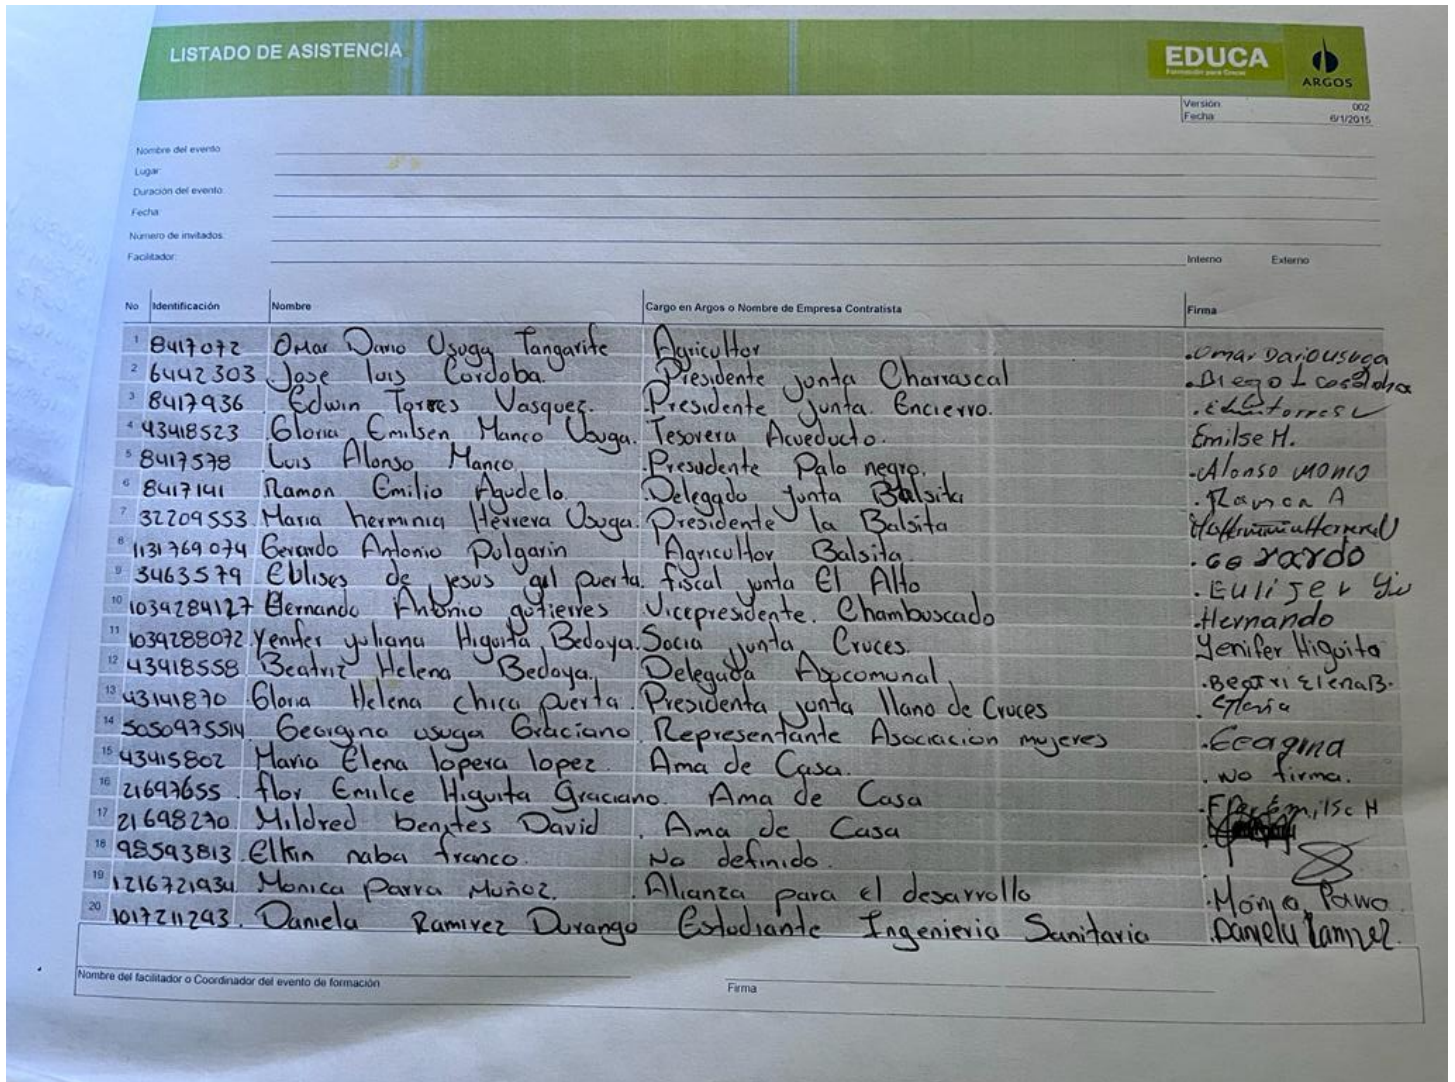 LISTADO DE ASISTENCIA
EDUCA
ARGOS
Versión 002
Fecha 6/1/2015
Nombre del evento
Lugar
Duración del evento
Fecha
Número de invitados
Facilitador
Interno Externo
No Identificación Nombre Cargo en Argos o Nombre de Empresa Contratista Firma
1 8417072 Omar Dario Usuga Tangarife Agricultor Omar Dario usuga
2 6442303 Jose luis Cordoba. Presidente junta Charrascal
3 8417936 Edwin Torres Vasquez. Presidente junta Encierro.
4 43418523 Gloria Emilsen Manco Usuga. Tesorera Acueducto. Emilse H.
5 8417578 Luis Alonso Manco Presudente Palo negro. Alonso Monco
6 8417141 Ramon Emilio Agudelo. Delegado junta Balsita Ramon A
7 32209553 Maria herminia Herrera Usuga. Presidente la Balsita
8 1131769074 Gerardo Antonio Pulgarin Agricultor Balsita. Gerardo
9 3463579 Eblises de jesus gil puerta. fiscal junta El Alto
10 1039284127 Hernando Antonio gutierres Vicepresidente. Chamboscado Hernando
11 1039288072 Yenifer yuliana Higuita Bedoya. Socia junta Cruces. Yenifer Higuita
12 43418558 Beatriz Helena Bedoya. Delegada Asocomunal.
13 43141870 Gloria Helena chica puerta. Presidenta junta llano de Cruces Gloria
14 5050975514 Georgina usuga Graciano. Representante Asociacion mujeres
15 43415802 Maria Elena lopera lopez. Ama de Casa. No firma.
16 21697655 flor Emilce Higuita Graciano. Ama de Casa Flor Emilse H
17 21698270 Mildred benites David. Ama de Casa
18 98593813 Elkin naba franco. No definido.
19 1216721934 Monica parra Muñoz. Alianza para el desarrollo Mónica Parra
20 1017211293. Daniela Ramirez Durango Estudiante Ingenieria Sanitaria Daniela Ramirez.
Nombre del facilitador o Coordinador del evento de formación
Firma